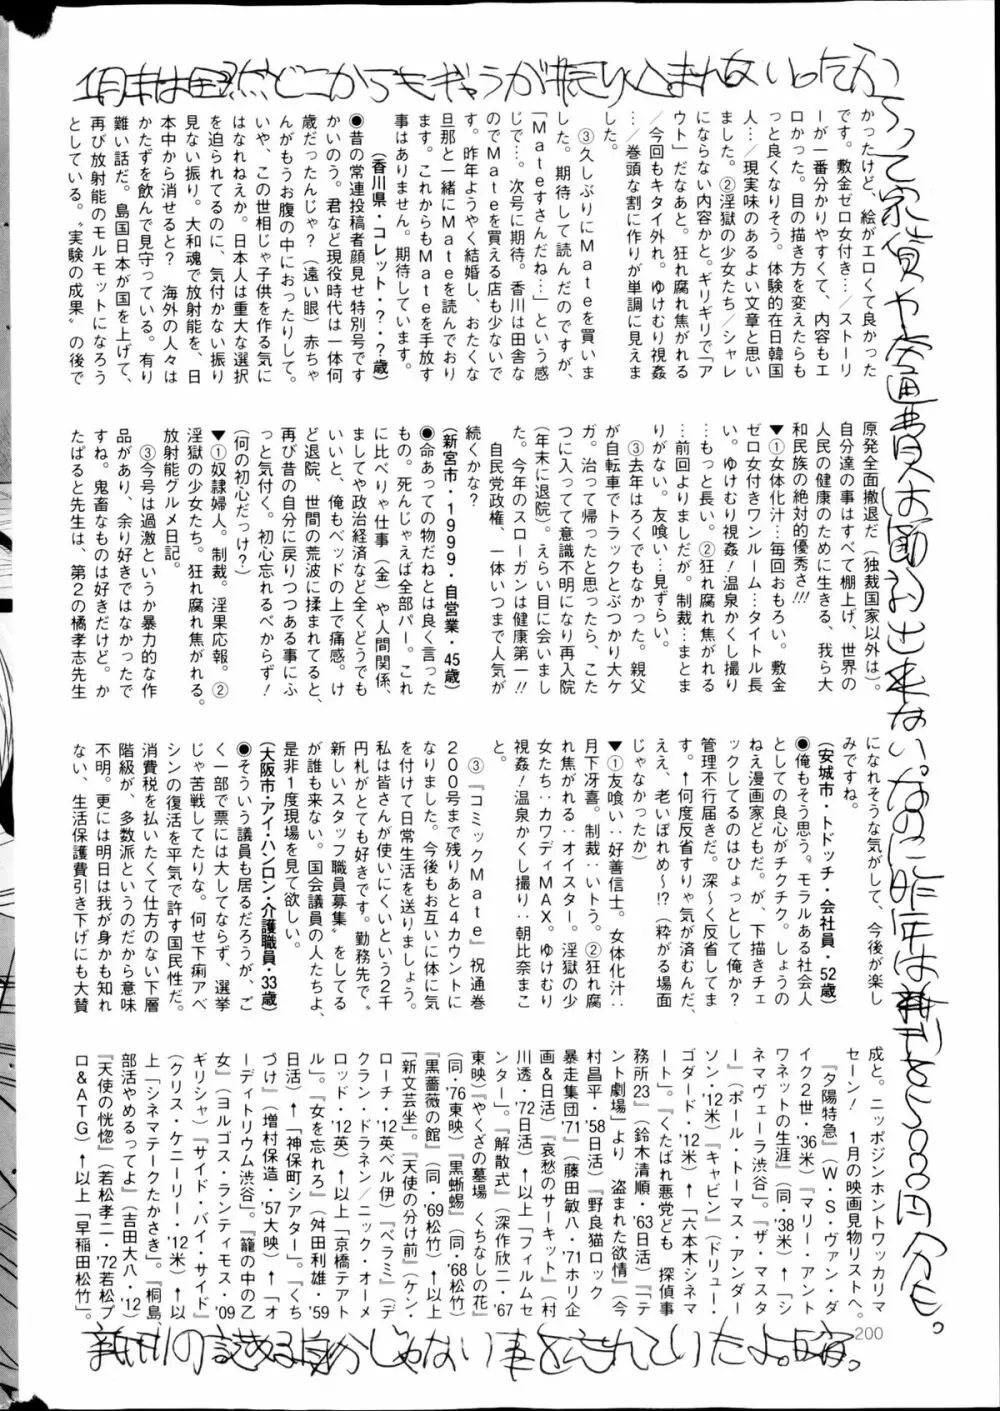 1月末は全然どこからもギャラが振り込まれないったか
らって家賃や交通費は節約出来ない。なのに昨年は新刊を5000円分も。
かったけど、絵がエロくて良かった
です。敷金ゼロ女付き…／ストーリ
ーが一番分かりやすくて、内容もエ
ロかった。目の描き方を変えたらも
っと良くなりそう。体験的在日韓国
人…／現実味のあるよい文章と思い
ました。②淫獄の少女たち／シャレ
にならない内容かと。ギリギリで「ア
ウト」だなあと。狂れ腐れ焦がれる
／今回もキタイ外れ。ゆけむり視姦
…／巻頭な割に作りが単調に見えま
した。
　③久しぶりにＭａｔｅを買いま
した。期待して読んだのですが、
「Ｍａｔｅすさんだね…」という感
じで…。次号に期待。香川は田舎な
のでＭａｔｅを買える店も少ないで
す。昨年ようやく結婚し、おたくな
旦那と一緒にＭａｔｅを読んでおり
ます。これからもＭａｔｅを手放す
事はありません。期待しています。
（香川県・コレット・？・？歳）
●昔の常連投稿者顔見せ特別号です
かいのう。君など現役時代は一体何
歳だったんじゃ？（遠い眼）赤ちゃ
んがもうお腹の中におったりして。
いや、この世相じゃ子供を作る気に
はなれねえか。日本人は重大な選択
を迫られてるのに、気付かない振り
見ない振り。大和魂で放射能を、日
本中から消せると？　海外の人々は
かたずを飲んで見守っている。有り
難い話だ。島国日本が国を上げて、
再び放射能のモルモットになろう
としている。〝実験の成果〟の後で
原発全面撤退だ（独裁国家以外は）。
自分達の事はすべて棚上げ、世界の
人民の健康のために生きる、我ら大
和民族の絶対的優秀さ!!!
▼①女体化汁…毎回おもろい。敷金
ゼロ女付きワンルーム…タイトル長
い。ゆけむり視姦！温泉かくし撮り
…もっと長い。②狂れ腐れ焦がれる
…前回よりましだが。制裁…まとま
りがない。友喰い…見ずらい。
　③去年はろくでもなかった。親父
が自転車でトラックとぶつかり大ケ
ガ。治って帰ったと思ったら、こた
つに入ってて意識不明になり再入院
（年末に退院）。えらい目に会いまし
た。今年のスローガンは健康第一!!
　自民党政権、一体いつまで人気が
続くかな？
（新宮市・１９９９・自営業・45歳）
●命あっての物だねとは良く言った
もの。死んじゃえば全部パー。これ
に比べりゃ仕事（金）や人間関係、
ましてや政治経済など全くどうでも
いいと、俺もベッドの上で痛感。け
ど退院、世間の荒波に揉まれてると、
再び昔の自分に戻りつつある事にふ
っと気付く。初心忘れるべからず！
（何の初心だっけ？）
▼①奴隷婦人。制裁。淫果応報。②
淫獄の少女たち。狂れ腐れ焦がれる。
放射能グルメ日記。
　③今号は過激というか暴力的な作
品があり、余り好きではなかったで
すね。鬼畜なものは好きだけど。か
たばると先生は、第２の橘孝志先生
になれそうな気がして、今後が楽し
みですね。
（安城市・トドッチ・会社員・52歳）
●俺もそう思う。モラルある社会人
としての良心がチクチク。しょうの
ねえ漫画家どもだ。が、下描きチェ
ックしてるのはひょっとして俺か？
管理不行届きだ。深～く反省してま
す。↑何度反省すりゃ気が済むんだ、
ええ、老いぼれめ～!?（粋がる場面
じゃなかったか）
▼①友喰い‥好善信士。女体化汁‥
月下冴喜。制裁‥いトう。②狂れ腐
れ焦がれる‥オイスター。淫獄の少
女たち‥カワディMAX。ゆけむり
視姦！温泉かくし撮り‥朝比奈まこ
と。
　③『コミックＭａｔｅ』祝通巻
２００号まで残りあと４カウントに
なりました。今後もお互いに体に気
を付けて日常生活を送りましょう。
私は皆さんが使いにくいという２千
円札がとても好きです。勤務先で〝
新しいスタッフ職員募集〟をしてる
が誰も来ない。国会議員の人たちよ、
是非１度現場を見て欲しい。
（大阪市・アイ・ハンロン・介護職員・33歳）
●そういう議員も居るだろうが、ご
く一部で票には大してならず、選挙
じゃ苦戦してたりな。何せ下痢アベ
シンの復活を平気で許す国民性だ。
消費税を払いたくて仕方のない下層
階級が、多数派というのだから意味
不明。更には明日は我が身かも知れ
ない、生活保護費引き下げにも大賛
成と。ニッポジンホントワッカリマ
セーン！　１月の映画見物リストへ。
『夕陽特急』（Ｗ・Ｓ・ヴァン・ダ
イク２世・'36米）『マリー・アント
ワネットの生涯』（同・'38米）↑「シ
ネマヴェーラ渋谷」。『ザ・マスタ
ー』（ポール・トーマス・アンダー
ソン・'12米）『キャビン』（ドリュー・
ゴダード・'12米）↑「六本木シネマ
ート」。『くたばれ悪党ども　探偵事
務所23』（鈴木清順・'63日活）『「テ
ント劇場」より　盗まれた欲情』（今
村昌平・'58日活）『野良猫ロック
暴走集団'71』（藤田敏八・'71ホリ企
画＆日活）『哀愁のサーキット』（村
川透・'72日活）↑以上「フィルムセ
ンター」。『解散式』（深作欣二・'67
東映）『やくざの墓場　くちなしの花』
（同・'76東映）『黒蜥蜴』（同・'68松竹）
『黒薔薇の館』（同・'69松竹）↑以上
「新文芸坐」。『天使の分け前』（ケン・
ローチ・'12英ベル伊）『ベラミ』（デ
クラン・ドネラン／ニック・オーメ
ロッド・'12英）↑以上「京橋テアト
ル」。『女を忘れろ』（舛田利雄・'59
日活）↑「神保町シアター」。『くち
づけ』（増村保造・'57大映）↑「オ
ーディトリウム渋谷」。『籠の中の乙
女』（ヨルゴス・ランティモス・'09
ギリシャ）『サイド・バイ・サイド』
（クリス・ケニーリー・'12米）↑以
上「シネマテークたかさき」。『桐島、
部活やめるってよ』（吉田大八・'12）
『天使の恍惚』（若松孝二・'72若松プ
ロ＆ATG）↑以上「早稲田松竹」。
200
新刊の読める身分じゃない事を忘れていたよ。